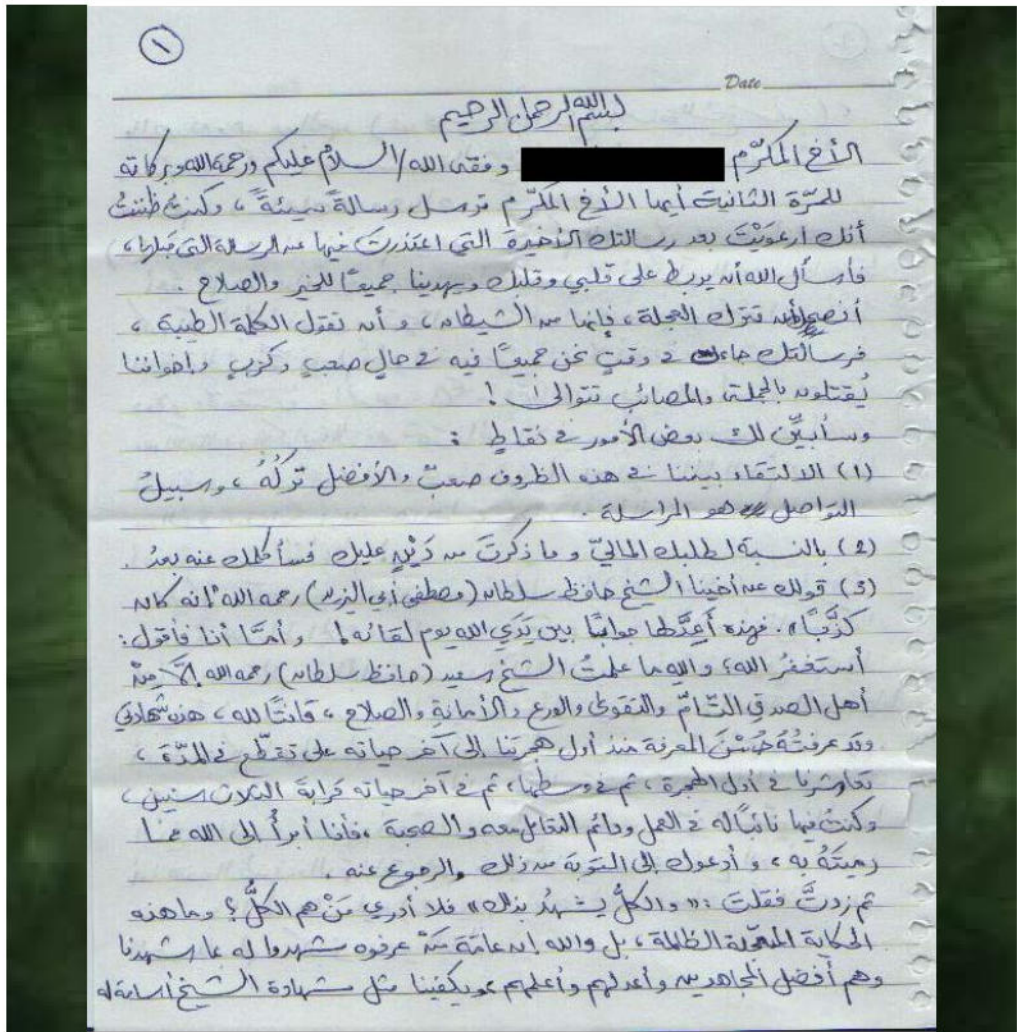 ١
Date
بسم الله الرحمن الرحيم
الأخ المكرّم وفقه الله / السلام عليكم ورحمة الله وبركاته
للمرّة الثانية أيها الأخ المكرّم ترسل رسالةً سيئةً ، وكنتُ ظننتُ
أنك ارعَوَيْتَ بعد رسالتك الأخيرة التي اعتذرتَ فيها عن الرسالة التي قبلها ،
فأسأل الله أن يربط على قلبي وقلبك ويهدينا جميعًا للخير والصلاح .
أنصح بأن تترك العجلة ، فإنها من الشيطان ، وأن تقول الكلمة الطيبة ،
فرسالتك جاءت في وقتٍ نحن جميعًا فيه في حالٍ صعبٍ وكربٍ وإخواننا
يُقتلون بالجملة والمصائب تتوالى !
وسأبيّن لك بعض الأمور في نقاطٍ :
(1) الالتقاء بيننا في هذه الظروف صعبٌ والأفضل تركُهُ ، وسبيلُ
التواصل هو المراسلة .
(2) بالنسبة لطلبك الماليّ وما ذكرتَ من دَيْنٍ عليك فسأكلمك عنه بعدُ .
(3) قولك عن أخينا الشيخ حافظ سلطان (مصطفى أبي اليزيد) رحمه الله "إنه كان
كذّبًا» . فهذه أعِدَّ لها جوابًا بين يَدَي الله يوم لقائه ! وأمّا أنا فأقول :
أستغفرُ الله ؛ والله ما علمتُ الشيخ سعيد (حافظ سلطان) رحمه الله إلّا مِنْ
أهل الصدقِ التّامّ والتقوى والورع والأمانةِ والصلاح ، قانتًا لله ، هذه شهادتي
وقد عرفتُهُ حُسْنَ المعرفة منذ أول هجرتنا إلى آخر حياته على تقطّع في المدّة ،
تعاشرنا في أول الهجرة ، ثم في وسطها ، ثم في آخر حياته قرابةَ الثلاث سنين ،
وكنتُ فيها نائبًا له في العمل ودائم التقابل معه والصحبة ، فأنا أبرأُ إلى الله ممّا
رميتَهُ به ، وأدعوك إلى التوبة من ذلك والرجوع عنه .
ثم زدتَّ فقلتَ : «والكلّ يشهدُ بذلك» فلا أدري مَنْ هم الكلُّ ؟ وما هذه
الحكاية الظالمة ، بل والله إن عامّة مَنْ عرفوه شهدوا له بما شهدنا
وهم أفضل المجاهدين وأعدلهم وأعلمهم ، ويكفينا مثل شهادة الشيخ أسامة له